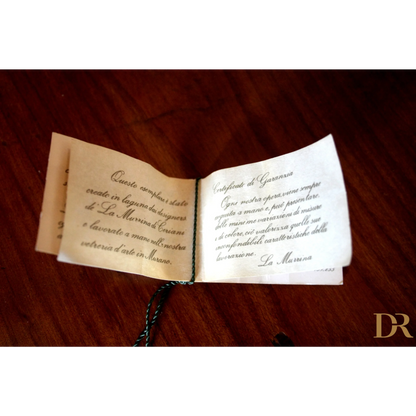 Questo esemplare è stato
creato in laguna dai designers
de "La Murrina" di Cenano
e lavorato a mano nella nostra
vetreria d'arte in Murano.
Certificato di Garanzia
Ogni nostra opera, viene sempre
eseguita a mano e può presentare
delle minime variazioni di misure
e di colore, ciò valorizza quelle sue
inconfondibili caratteristiche della
lavorazione.
La Murrina
DR